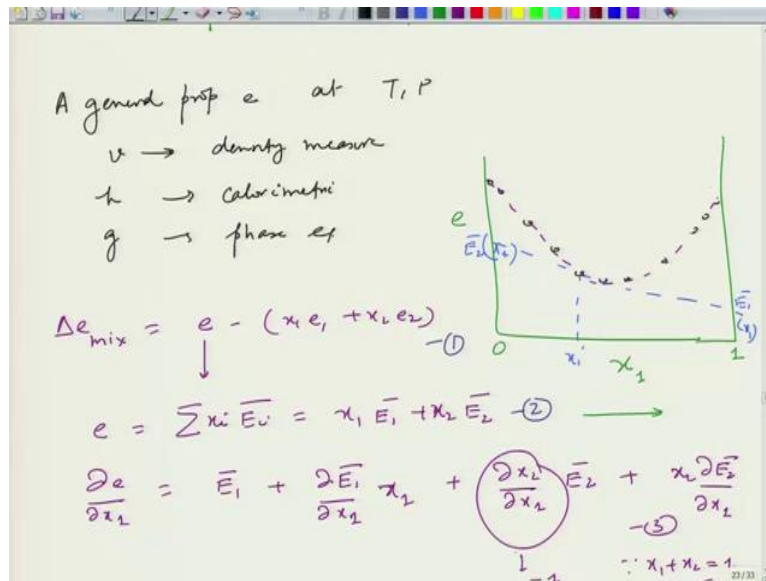 A general prop e at T, P
v → density measure
h → calorimetri
g → phase eq
e
Ē₂(x₂)
Ē₁
(x₁)
0
x₁
x₁
1
Δe_mix = e - (x₁e₁ + x₂e₂) -①
e = Σ xᵢ Ēᵢ = x₁ Ē₁ + x₂ Ē₂ -②
∂e/∂x₁ = Ē₁ + ∂Ē₁/∂x₁ x₁ + ∂x₂/∂x₁ Ē₂ + x₂ ∂Ē₂/∂x₁
-③
∵ x₁+x₂ = 1
23/33